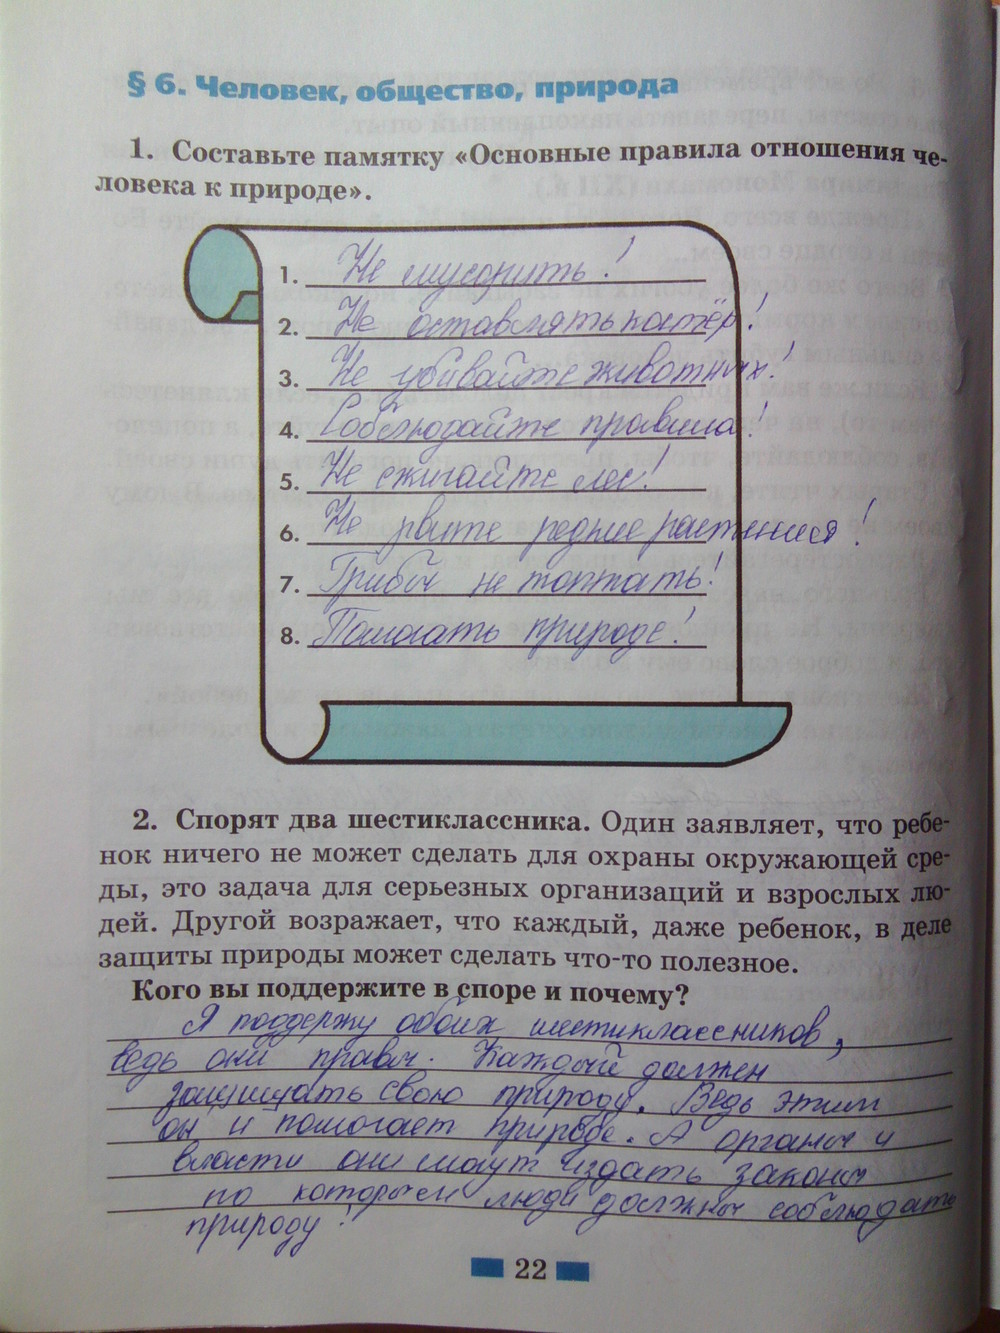 § 6. Человек, общество, природа
1. Составьте памятку «Основные правила отношения че-
ловека к природе».
1. Не мусорить!
2. Не оставлять костёр!
3. Не убивайте животных!
4. Соблюдайте правила!
5. Не сжигайте лес!
6. Не рвите редкие растения!
7. Грибы не топтать!
8. Помогать природе!
2. Спорят два шестиклассника. Один заявляет, что ребе-
нок ничего не может сделать для охраны окружающей сре-
ды, это задача для серьезных организаций и взрослых лю-
дей. Другой возражает, что каждый, даже ребенок, в деле
защиты природы может сделать что-то полезное.
Кого вы поддержите в споре и почему?
Я поддержу обоих шестиклассников,
ведь они правы. Каждый должен
защищать свою природу. Ведь этим
он и помогает природе. А органы и
власти они могут издать законы
по которым люди должны соблюдать
природу!
22